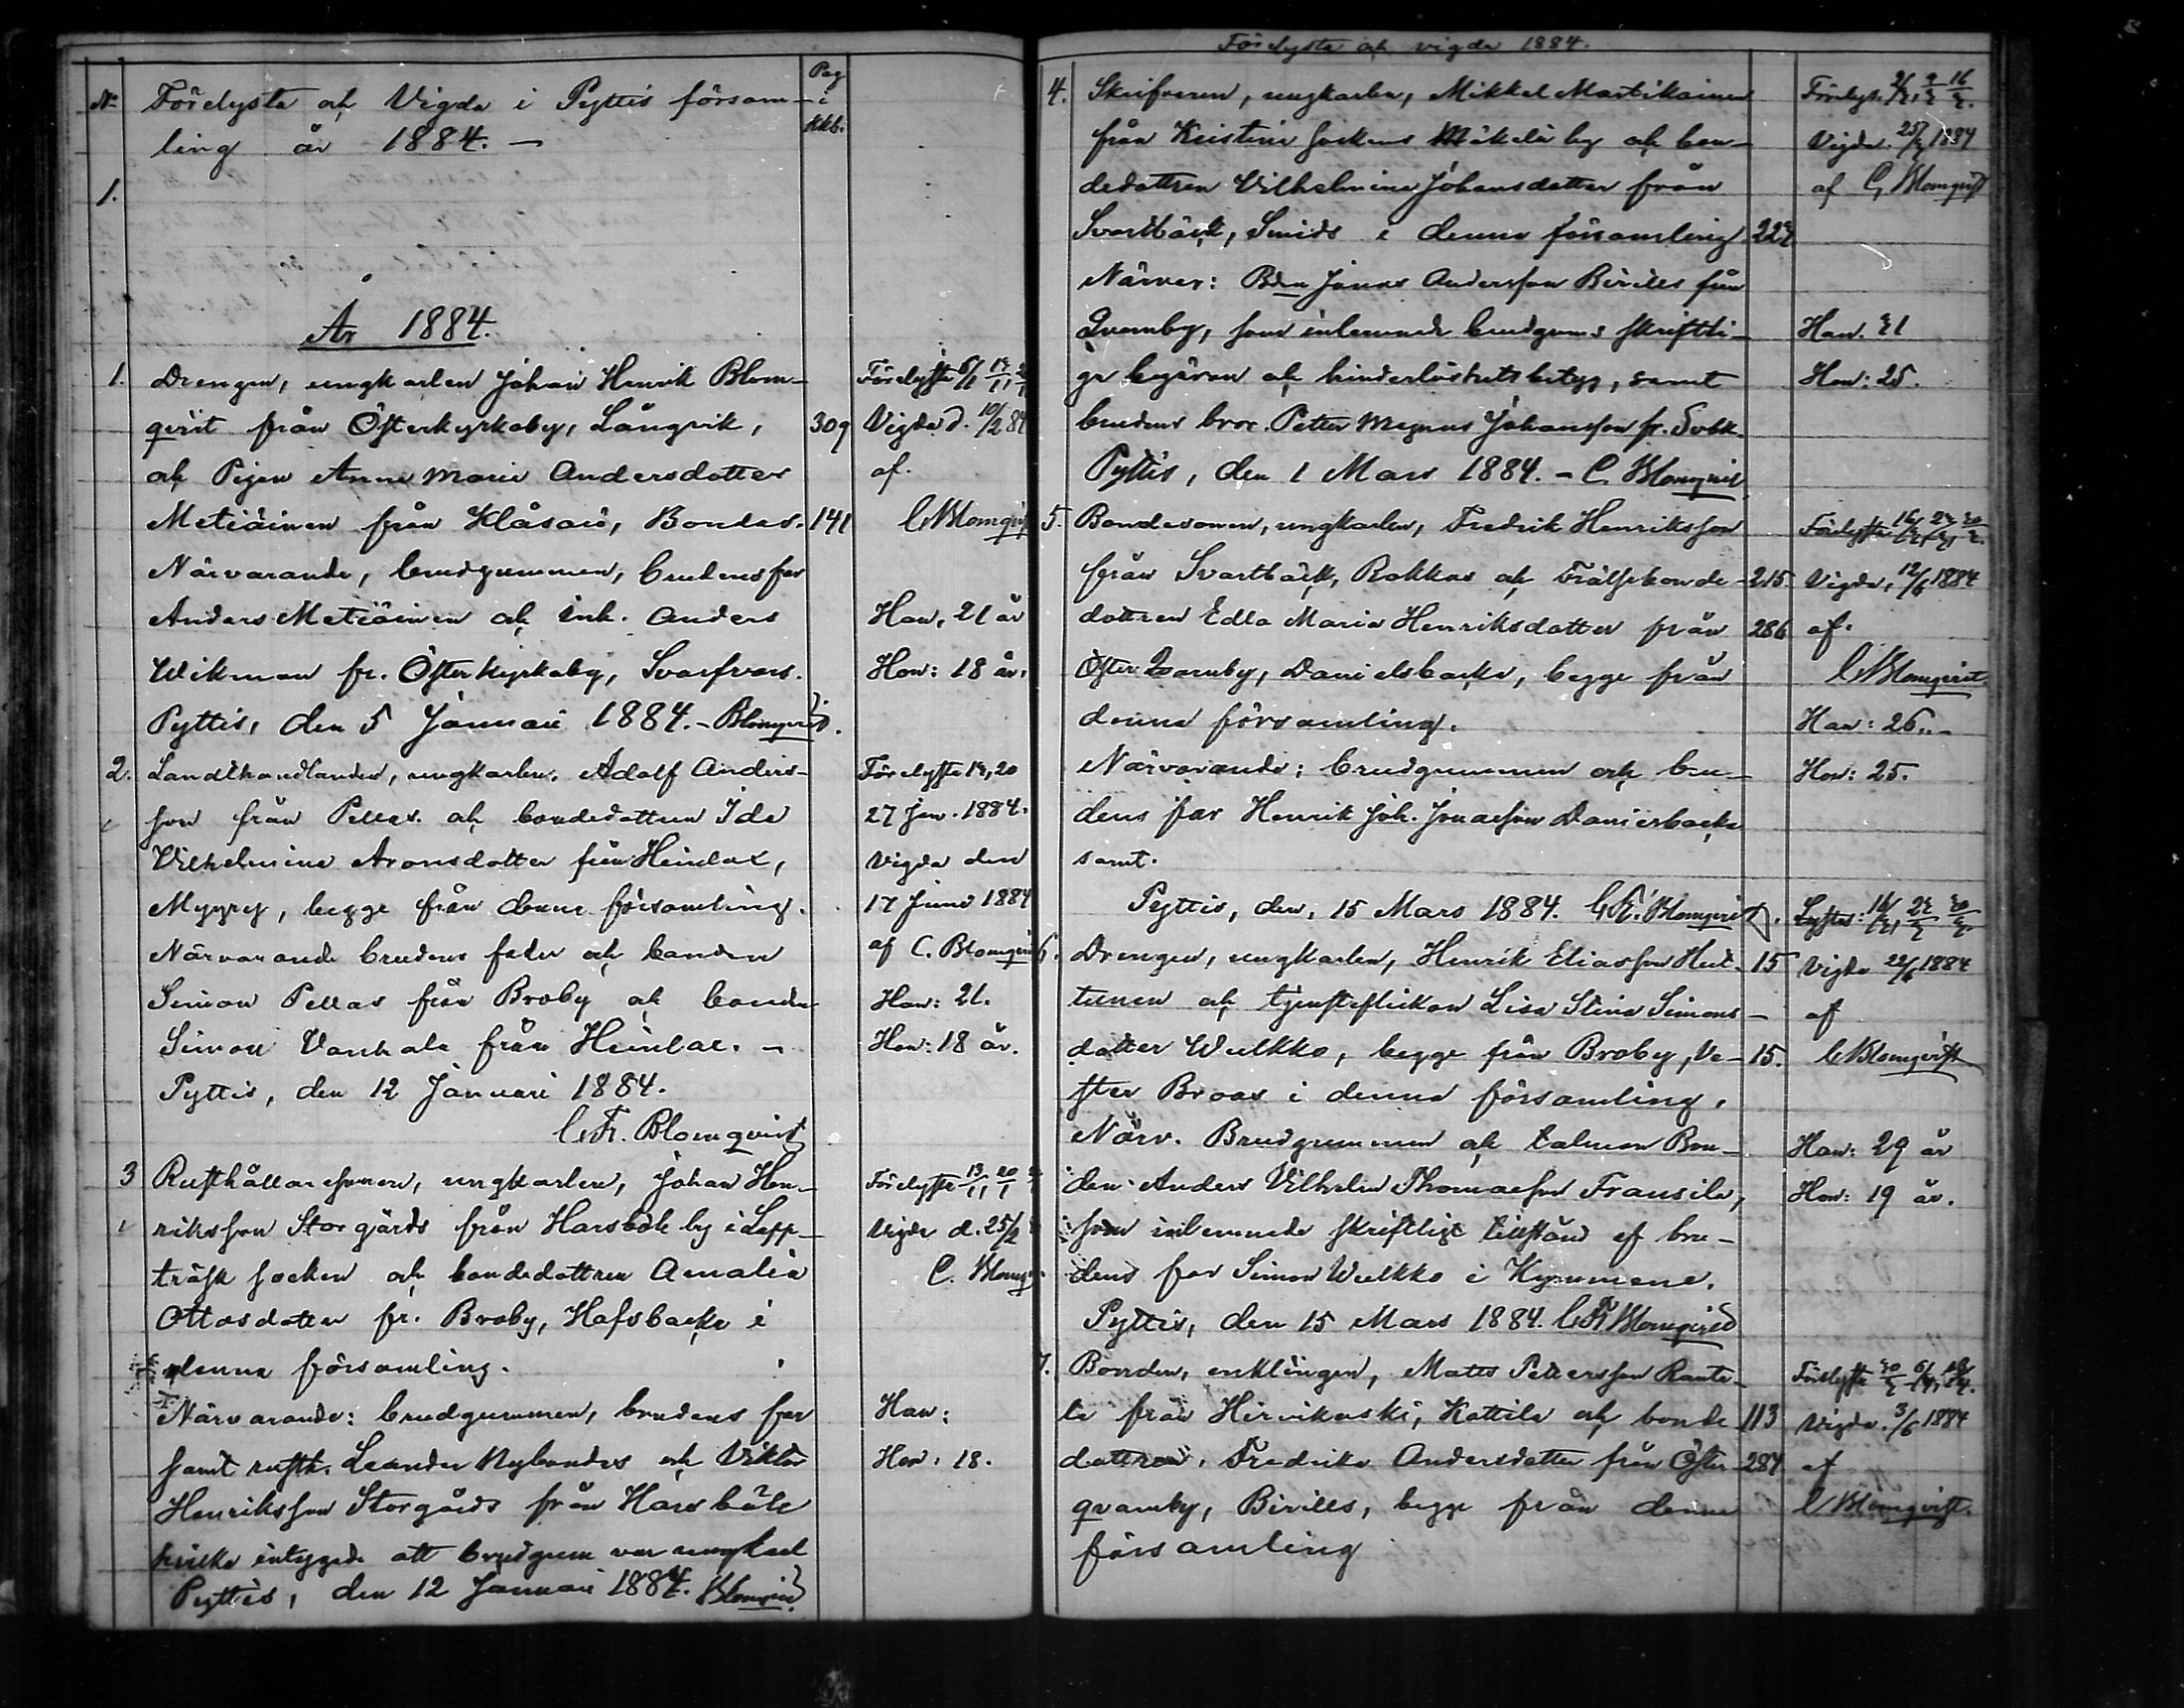 N:o
Förelysta och Vigda i Pyttis försam-
ling år 1884. —
Pag
i
Kkb.
1.
År 1884.
1. Drengen, ungkarlen Johan Henrik Blom-
qvist från Österkyrkoby, Långvik, 309
och Pigan Anna Maria Andersdotter
Metiäinen från Klåsarö, Bondas. 141
Närvarande, brudgummen, brudens far
Anders Metiäinen och inh. Anders
Wikman fr. Österkyrkoby, Svarfvars.
Pyttis, den 5 Januari 1884. - Blomqvist.
Förelysta 6/1 13/1
Vigda d. 10/2 84
af.
C Blomqvist
Han, 21 år
Hon: 18 år.
2. Landthandlanden, ungkarlen, Adolf Anders-
son från Pellas och bondedottren Ida
Vilhelmina Aronsdotter från Heinlax,
Myggry, begge från denna församling.
Närvarande brudens fader och bonden
Simon Pellas från Broby och bonden
Simon Vanhala från Heinlax. —
Pyttis, den 12 Januari 1884.
C. Fr. Blomqvist
Förelysta 13, 20
27 Jan. 1884.
Vigda den
17 Juni 1884
af C. Blomqvist
Han: 21.
Hon: 18 år.
3 Rusthållaresonen, ungkarlen, Johan Hen-
riksson Storgårds från Harsböle by i Lapp-
träsk socken och bondedottren Amalia
Ottosdotter fr. Broby, Hafsbacka i
denna församling.
Närvarande: brudgummen, brudens far
samt rusth. Leander Nylanders och Viktor
Henriksson Storgårds från Harsböle
hvilka intygade att brudgum var ungkarl
Pyttis, den 12 Januari 1884. Blomqvist
Förelysta 13/1 20/1
Vigda d. 25/2
C. Blomq
Han:
Hon: 18.
Förelysta och vigda 1884.
4. Skrifvaren, ungkarlen, Mikkel Martikainen
från Kristina sockens Mäkelä by och bon-
dedottren Vilhelmina Johansdotter från
Svartbäck, Smids i denna församling 223
Närvar: Bdn Jonas Andersson Birilles från
Qvarnby, som inlemnade brudgums skriftli-
ga begäran och hinderlöshetsbetyg, samt
brudens bror Petter Magnus Johansson fr. Svbk.
Pyttis, den 1 Mars 1884. - C. Blomqvist
Förelyst. 2/3, 9/3 16/3.
Vigda. 25/3 1884
af C Blomqvist
Han. 31
Hon: 25.
5. Bondesonen, ungkarlen, Fredrik Henriksson
från Svartbäck, Rokkas och Frälsebonde- 215
dottren Edla Maria Henriksdotter från 286
Öster Qvarnby, Danielsbacka, begge från
denna församling.
Närvarande; brudgummen och bru-
dens far Henrik Joh. Jonasson Danielsbacka
samt.
Pyttis, den, 15 Mars 1884. C. Fr. Blomqvist.
Förelysta 16/3, 23/3, 30/3.
Vigda, 12/6 1884
af.
C Blomqvist
Han: 26..
Hon: 25.
6. Drengen, ungkarlen, Henrik Eliasson Hut- 15
tunen och tjensteflickan Lisa Stina Simons-
dotter Wulkko, begge från Broby, Ve- 15.
ster Broas i denna församling.
Närv. Brudgummen och talman Bon-
den Anders Vilhelm Thomasson Fransila,
som inlemnade skriftligt tillstånd af bru-
dens far Simon Wulkko i Kymmene.
Pyttis, den 15 Mars 1884. C Fr Blomqvist
Lystes: 16/3, 23/3 30/3
Vigda 22/6 1884
af
C Blomqvist
Han: 29 år
Hon: 19 år.
7. Bonden, enklingen, Matts Pettersson Rante-
la från Hirvikoski, Kattila och bonde 113
dottren, Fredrika Andersdotter från Öster 284
qvarnby, Birilles, begge från denna
församling
Förelysta 30/3 6/4, 13/4.
Vigda. 3/6 1884
af
C Blomqvist.